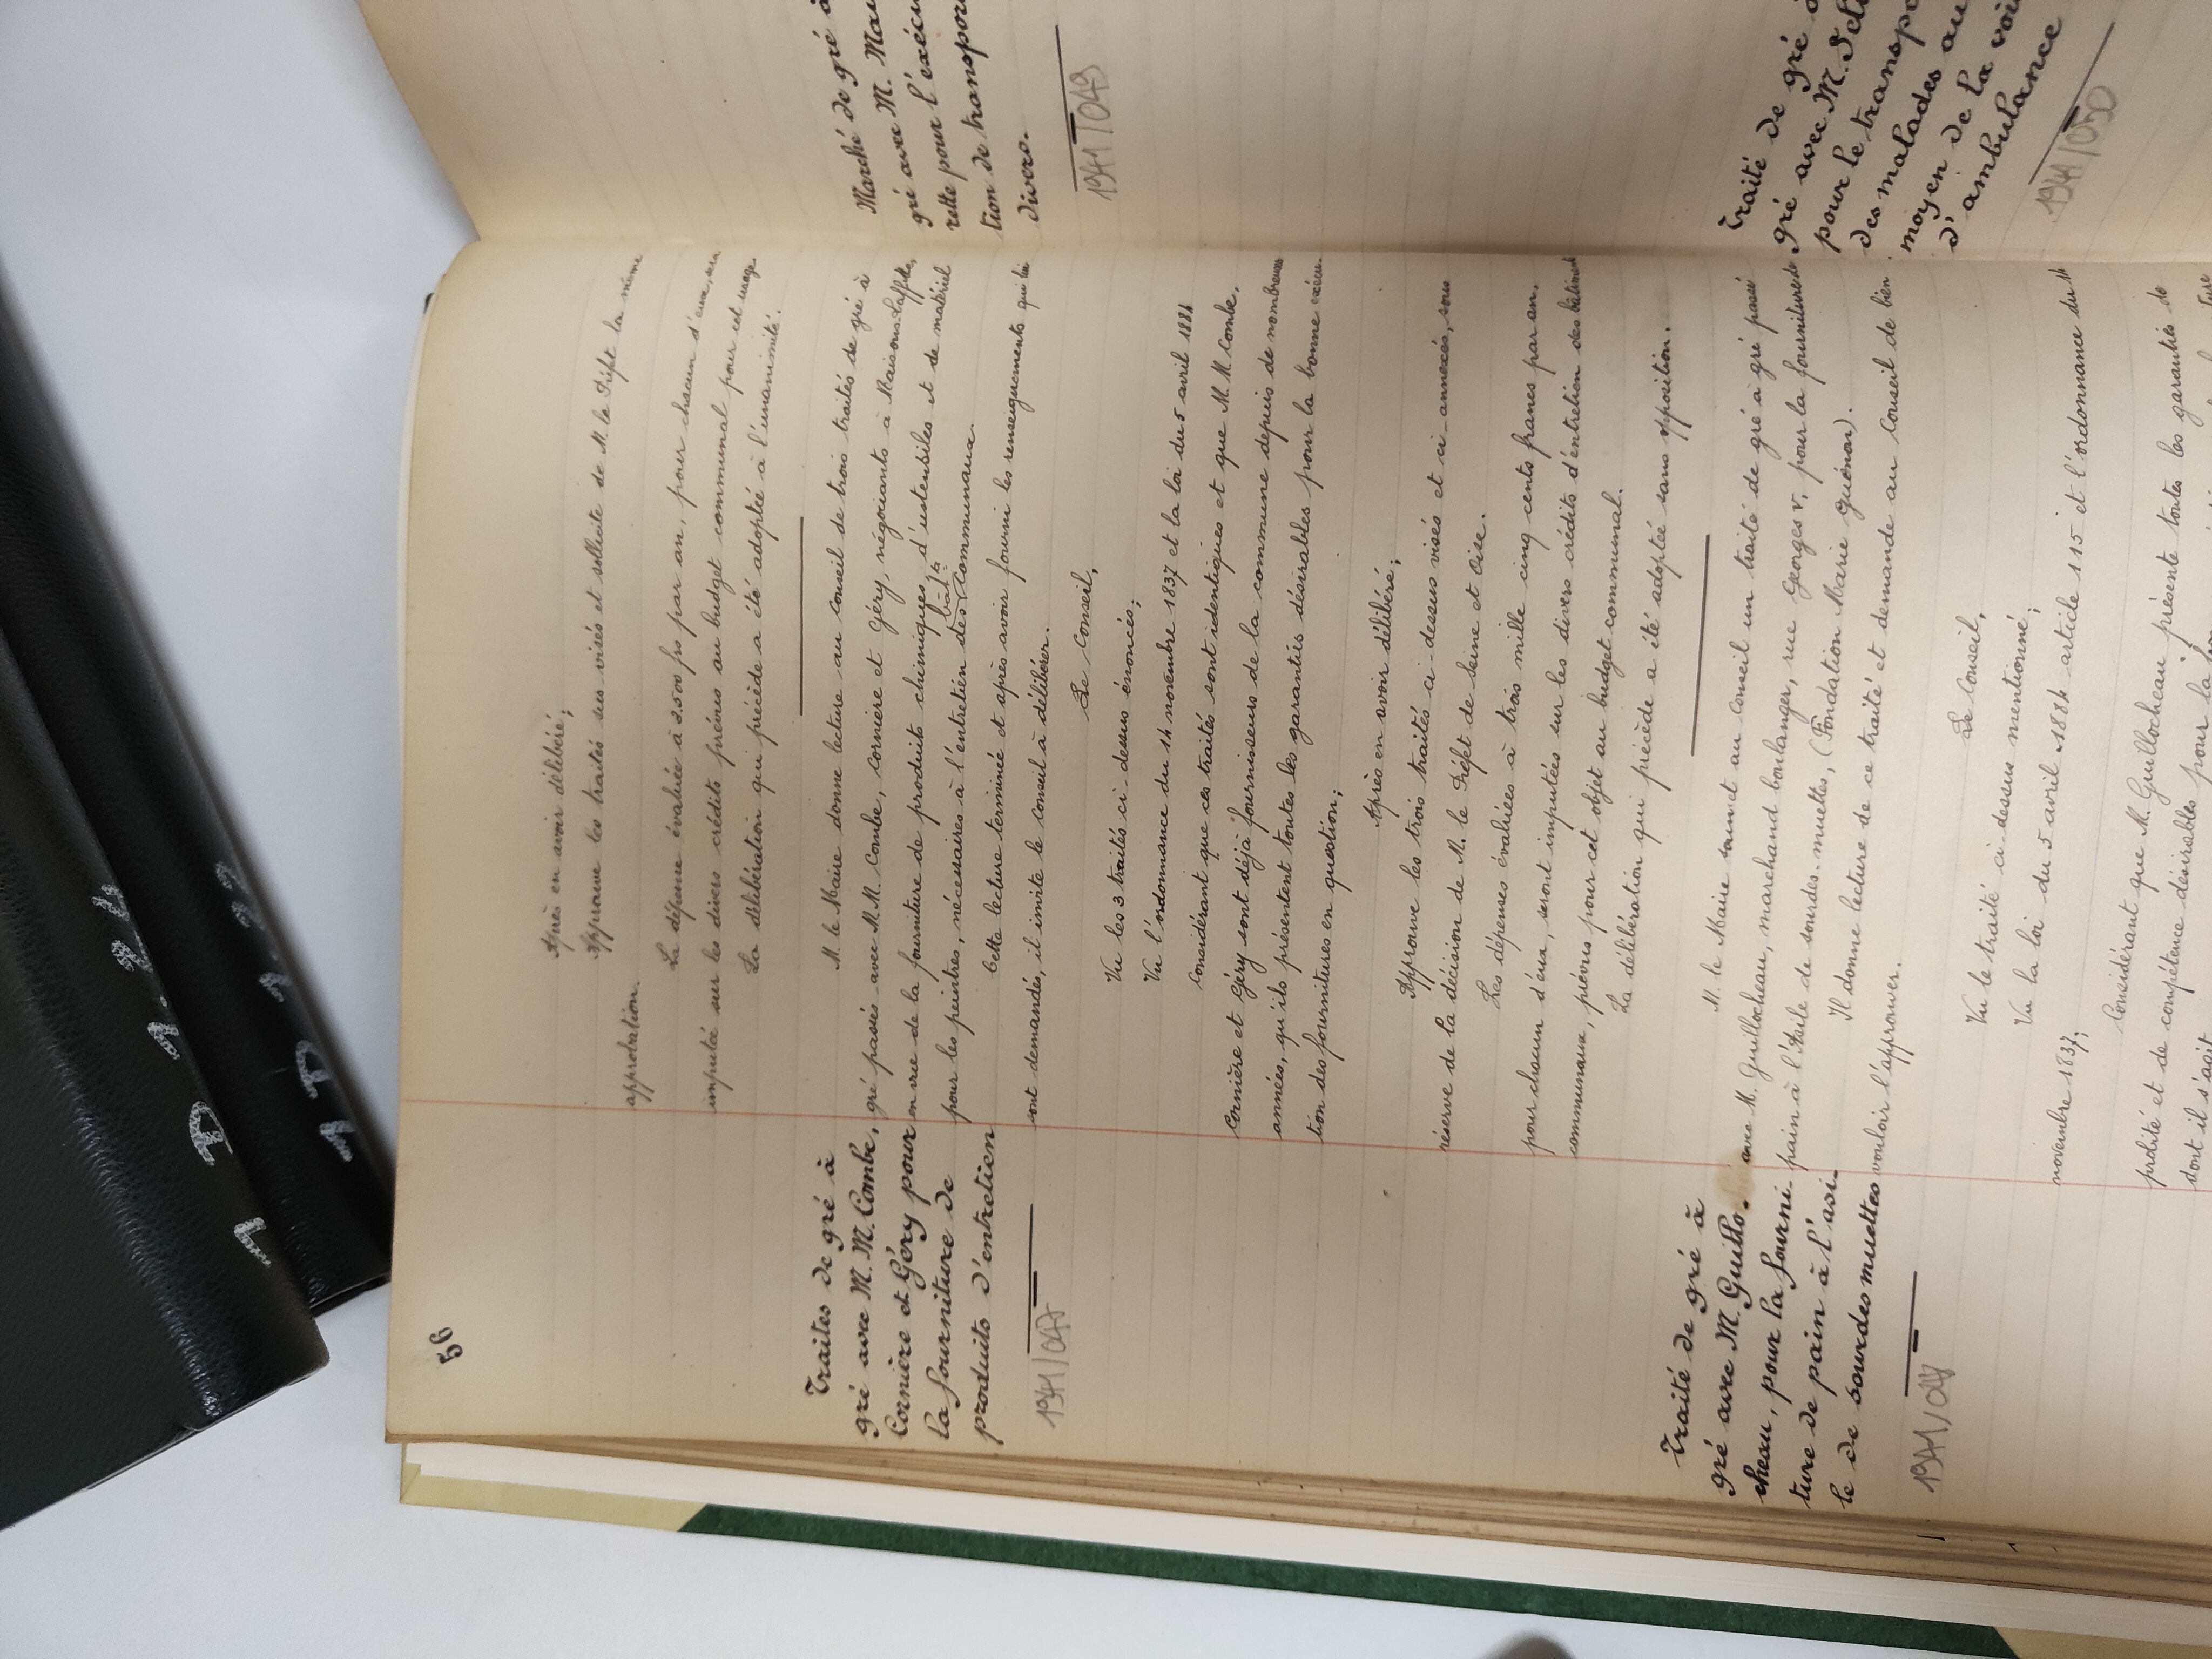 56
Après en avoir délibéré;
Approuve les traités sus visés et sollicite de M. le Préfet la même
approbation.
La dépense évaluée à 2.500 frs par an, pour chacun d'eux, sera
imputée sur les divers crédits prévus au budget communal pour cet usage.
La délibération qui précède a été adoptée à l'unanimité.
Traités de gré à
gré avec M.M. Combe,
Cornière et Géry pour
la fourniture de
produits d'entretien
1941/047
M. le Maire donne lecture au conseil de trois traités de gré à
gré passés avec M.M. Combe, Cornière et Géry, négociants à Maisons-Laffitte,
en vue de la fourniture de produits chimiques, d'ustensiles et de matériel
pour les peintres, nécessaires à l'entretien des bâts communaux.
Cette lecture terminée et après avoir fourni les renseignements qui lui
sont demandés, il invite le conseil à délibérer.
Le Conseil,
Vu les 3 traités ci dessus énoncés;
Vu l'ordonnance du 14 novembre 1837 et la loi du 5 avril 1884
Considérant que ces traités sont identiques et que M.M. Combe,
Cornière et Géry sont déjà fournisseurs de la commune depuis de nombreuses
années, qu'ils présentent toutes les garanties désirables pour la bonne exécu-
tion des fournitures en question;
Après en avoir délibéré;
Approuve les trois traités ci-dessus visés et ci-annexés, sous
réserve de la décision de M. le Préfet de Seine et Oise.
Les dépenses évaluées à trois mille cinq cents francs par an,
pour chacun d'eux, seront imputées sur les divers crédits d'entretien des bâtiments
communaux, prévus pour cet objet au budget communal.
La délibération qui précède a été adoptée sans opposition.
Traité de gré à
gré avec M. Guillo-
cheau, pour la fourni-
ture de pain à l'asi-
le de sourdes muettes
1941/048
M. le Maire soumet au conseil un traité de gré à gré passé
avec M. Guillocheau, marchand boulanger, rue Georges V, pour la fourniture de
pain à l'Asile de sourdes-muettes, (Fondation Marie Guénon).
Il donne lecture de ce traité et demande au Conseil de bien
vouloir l'approuver.
Le Conseil,
Vu le traité ci dessus mentionné;
Vu la loi du 5 avril 1884 article 115 et l'ordonnance du 14
novembre 1837;
Considérant que M. Guillocheau présente toutes les garanties de
probité et de compétence désirables pour la
dont il s'agit
Marché de gré à
gré avec M. Mau
rette pour l'exécu
tion de transpor
divers.
1941/049
Traité de gré à
gré avec M. Del
pour le transpo
des malades au
moyen de la voi
d'ambulance
1941/050
1 D 1.24
1 D 1.22